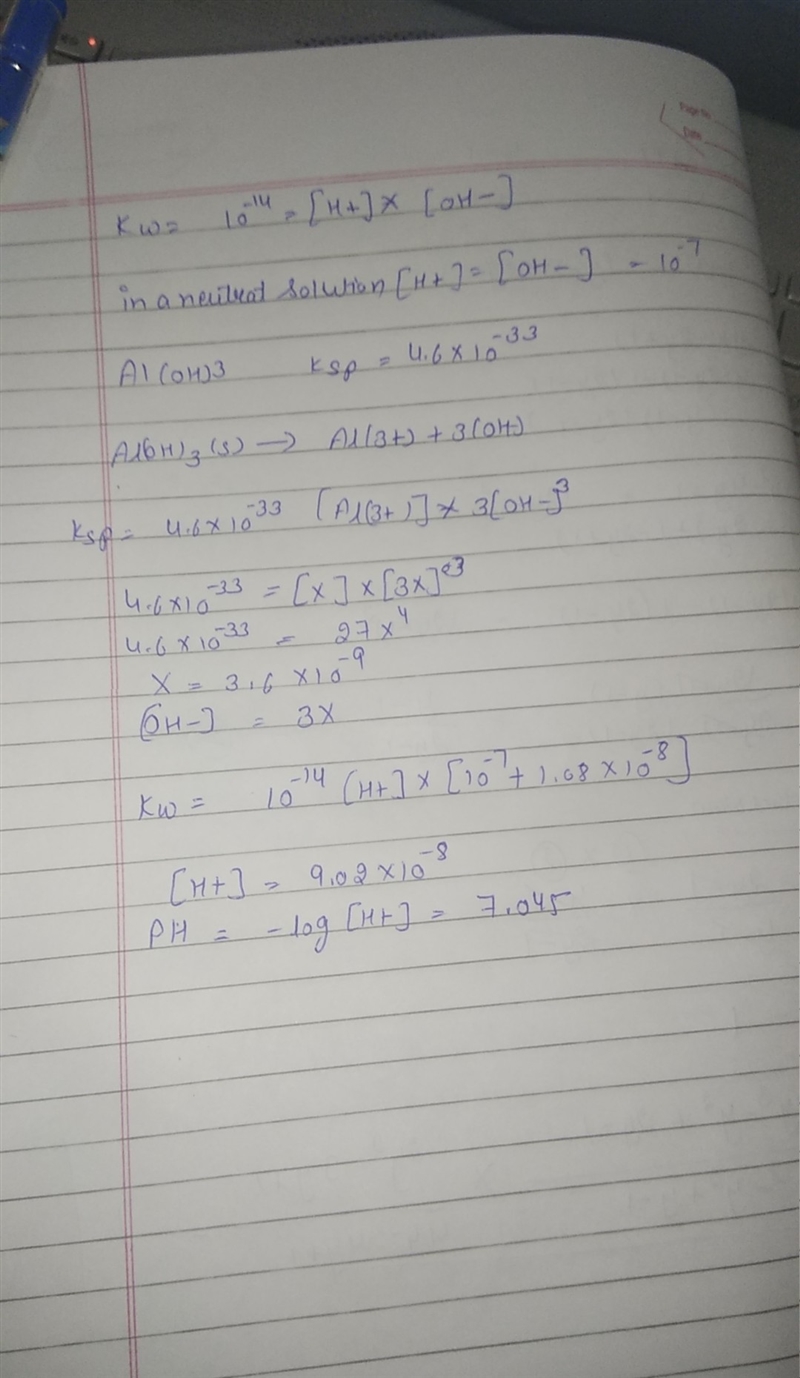 Page No.
Date
Kw = 10^-14 = [H+] × [OH-]
in a neutral solution [H+] = [OH-] = 10^-7
Al(OH)3 Ksp = 4.6×10^-33
Al(OH)3(s) → Al(3+) + 3(OH)
Ksp = 4.6×10^-33 [Al(3+)] × 3[OH-]^3
4.6×10^-33 = [x] × [3x]^3
4.6×10^-33 = 27x^4
x = 3.6×10^-9
[OH-] = 3x
Kw = 10^-14 [H+] × [10^-7 + 1.08×10^-8]
[H+] = 9.02×10^-8
PH = -log [H+] = 7.045